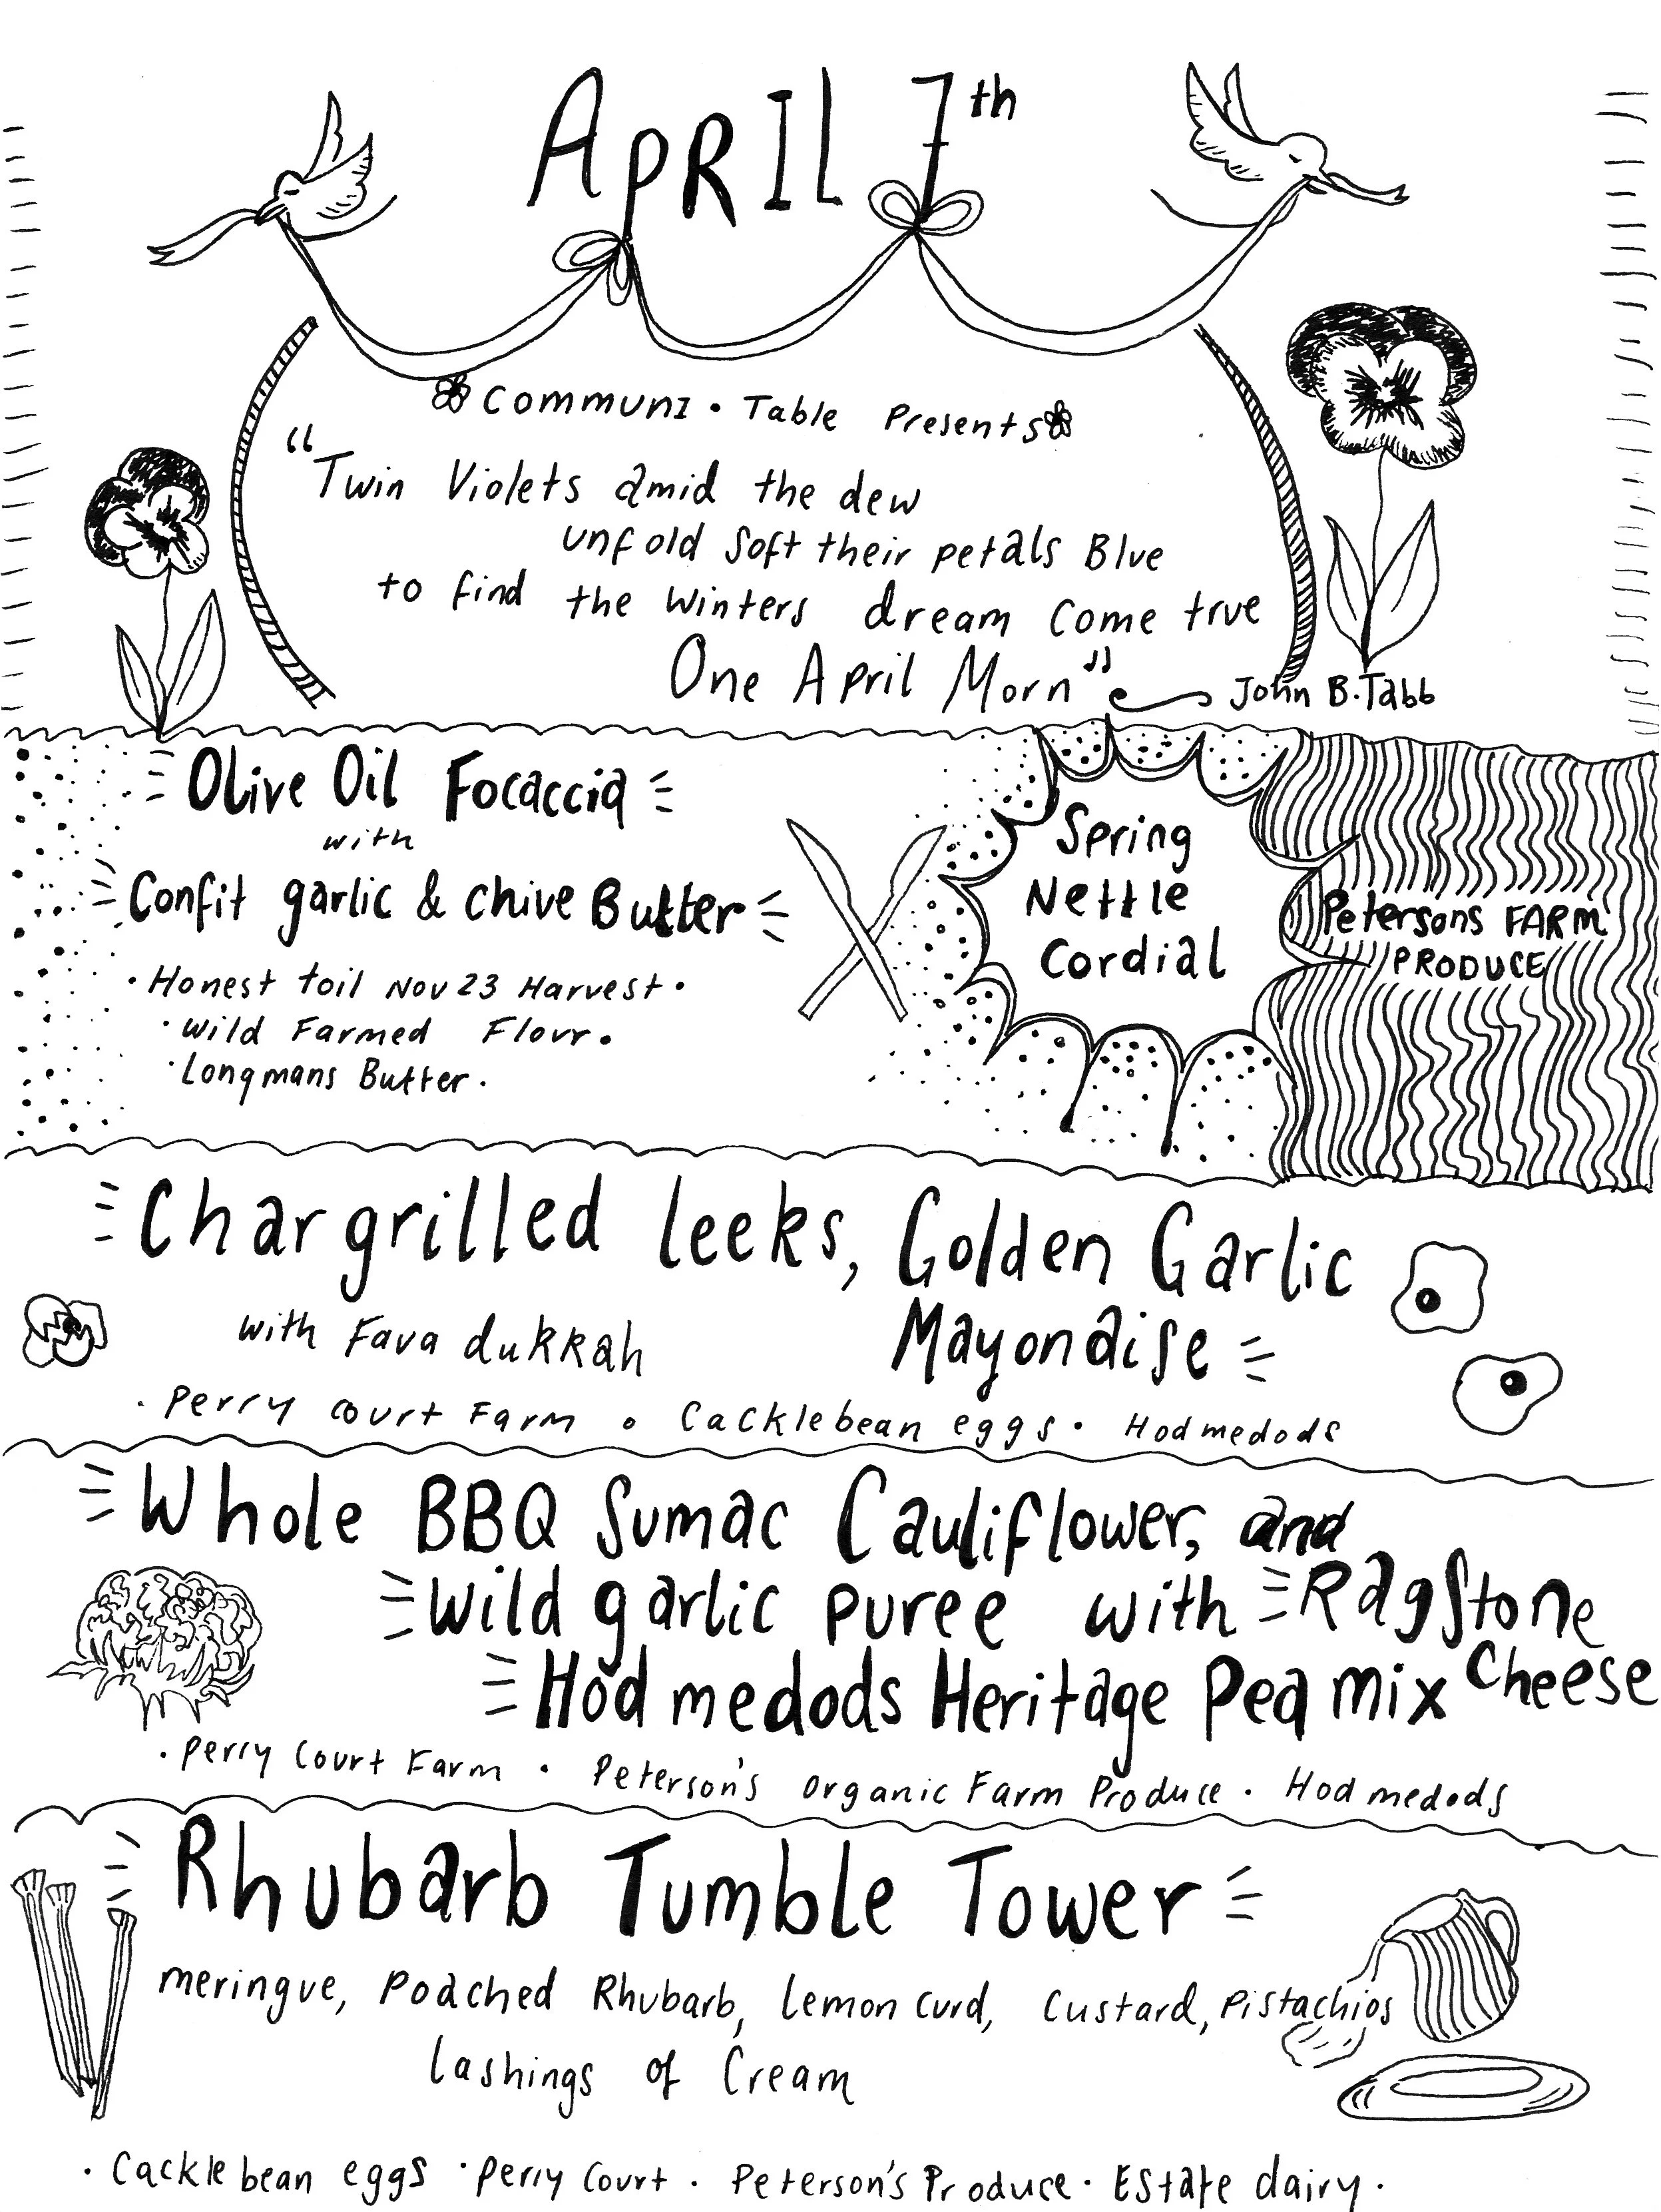 APRIL 7th
Communi · Table Presents
"Twin Violets amid the dew
unfold soft their petals Blue
to find the Winters dream Come true
One April Morn"
John B. Tabb
Olive Oil Focaccia
with
Confit garlic & chive Butter
· Honest toil Nov 23 Harvest ·
· Wild Farmed Flour ·
· Longmans Butter ·
Spring
Nettle
Cordial
Petersons FARM
PRODUCE
Chargrilled leeks, Golden Garlic
Mayonaise
with Fava dukkah
· Perry Court Farm · Cacklebean eggs · Hodmedods
Whole BBQ Sumac Cauliflower, and
Wild garlic puree with Ragstone
Cheese
Hodmedods Heritage Pea mix
· Perry Court Farm · Peterson's Organic Farm Produce · Hodmedods
Rhubarb Tumble Tower
meringue, Poached Rhubarb, Lemon Curd, Custard, Pistachios
lashings of Cream
· Cacklebean eggs · Perry Court · Peterson's Produce · Estate dairy ·